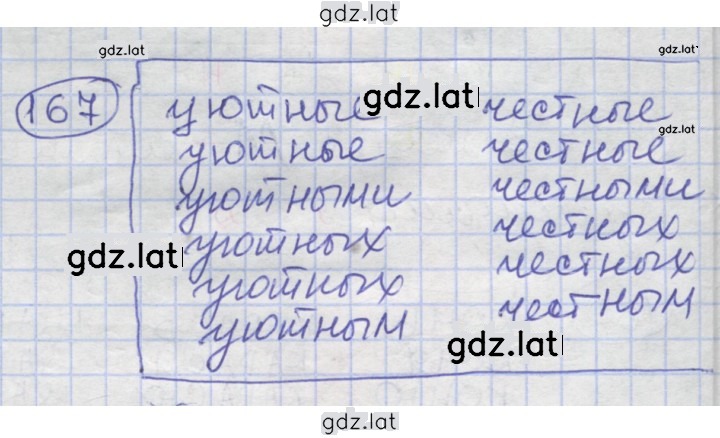 gdz.lat
gdz.lat gdz.lat
167 уютные gdz.lat честные
gdz.lat
уютные честные
уютными честными
уютных честных
gdz.lat
уютных честных
уютным честным
gdz.lat
gdz.lat